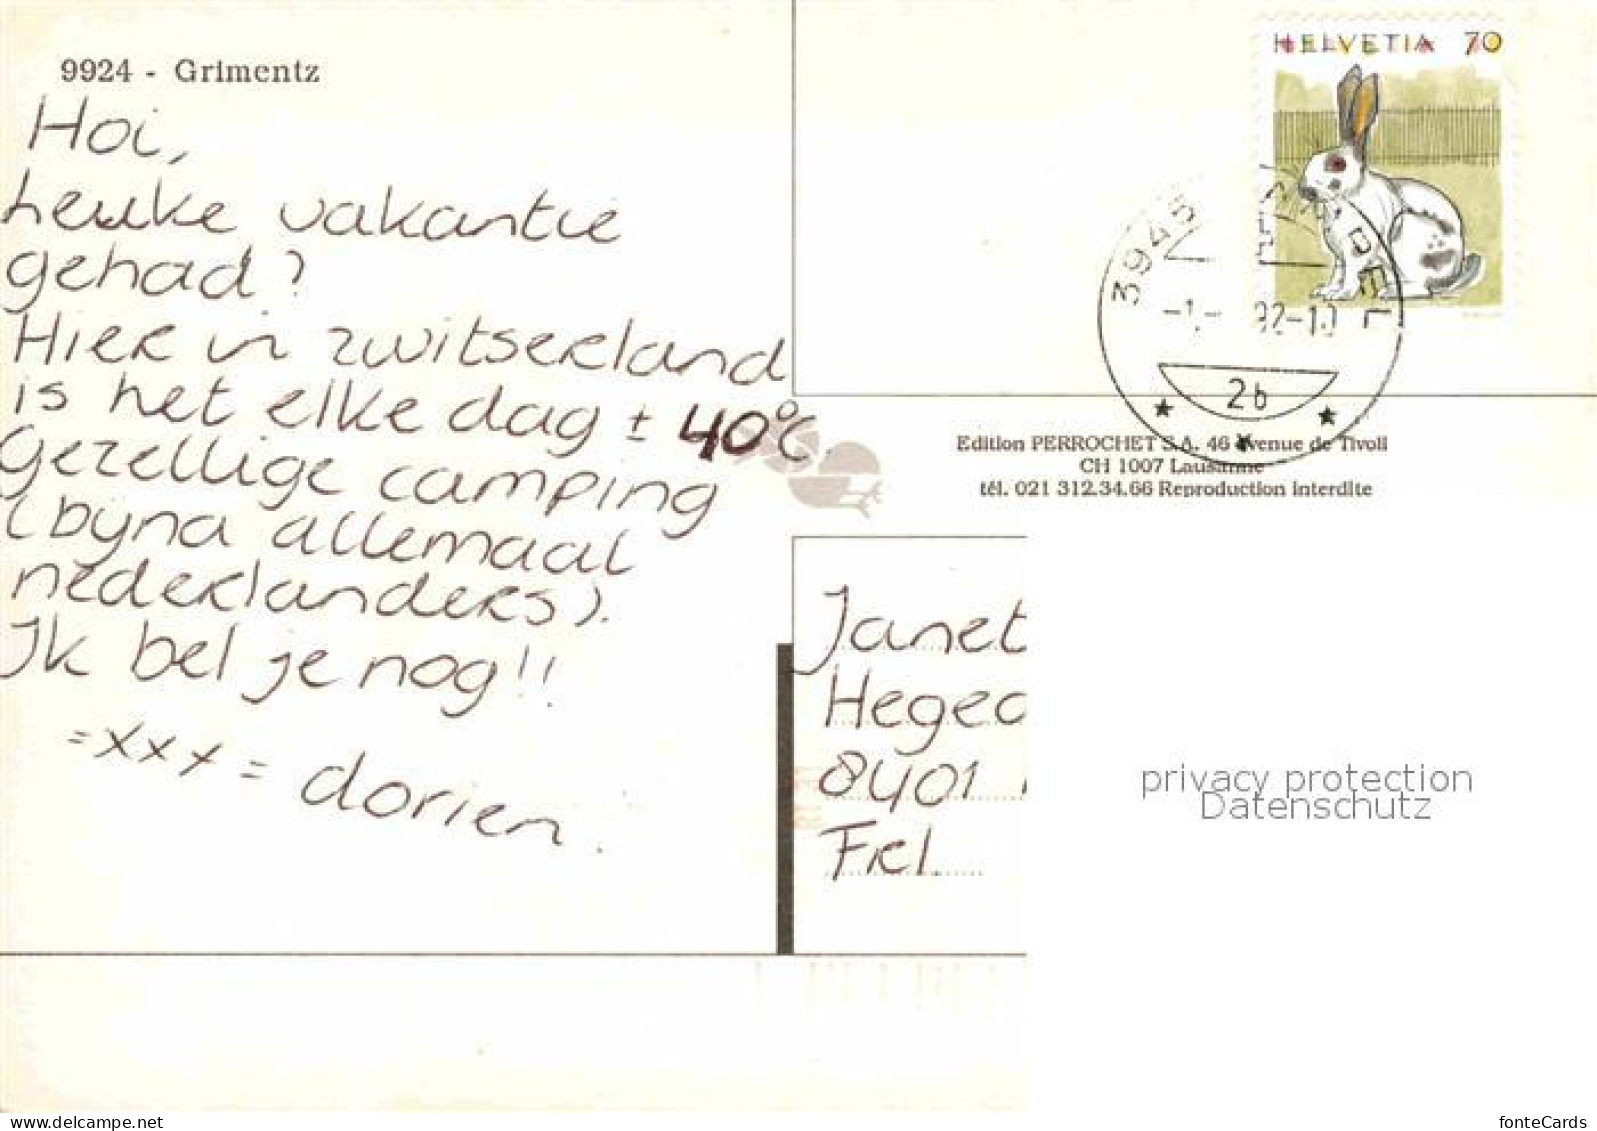 9924 - Grimentz
Hoi,
heuke vakantie
gehad?
Hier in zwitserland
is het elke dag ± 40°C.
Gezellige camping
(byna allemaal
nederlanders).
Ik bel je nog!!
=xxx= dorien.
HELVETIA 70
3945
-1.- 92-10
2b
Edition PERROCHET S.A. 46 Avenue de Tivoli
CH 1007 Lausanne
tél. 021 312.34.66 Reproduction interdite
Janet
Hege
8401
Frl.
privacy protection
Datenschutz
delcampe.net
fonteCards